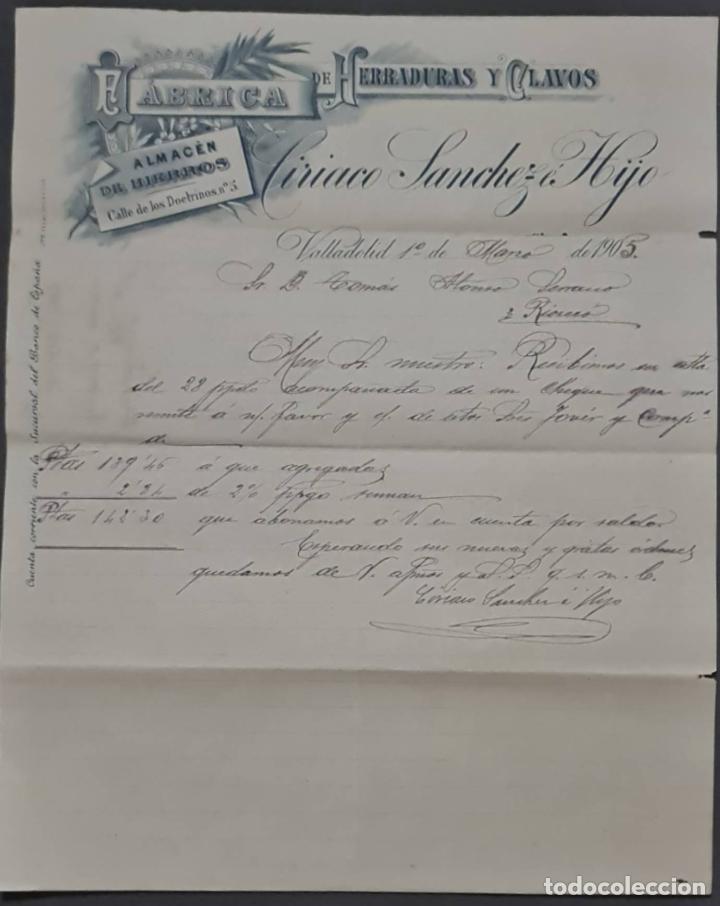 FÁBRICA DE HERRADURAS Y CLAVOS
ALMACÉN
DE HIERROS
Calle de los Doctrinos, nº 5
Ciriaco Sanchez é Hijo
Valladolid 1º de Marzo de 1905.
Sr. D. Tomás Alonso Serrano
Rioseco
Muy Sr. nuestro: Recibimos su atta
del 28 ppdo acompañada de un cheque que nos
remite á n/ favor y c/ de estos Sres Jover y Compª
de
Ptas 139'46 á que agregadas
" 2'84 de 2% ppgo suman
Ptas 142'30 que abonamos á V. en cuenta por saldar
Esperando sus nuevas y gratas órdenes
quedamos de V. afmos y S.S. q. s. m. b.
Ciriaco Sanchez é Hijo
Cuenta corriente con la Sucursal del Banco de España
todocoleccion